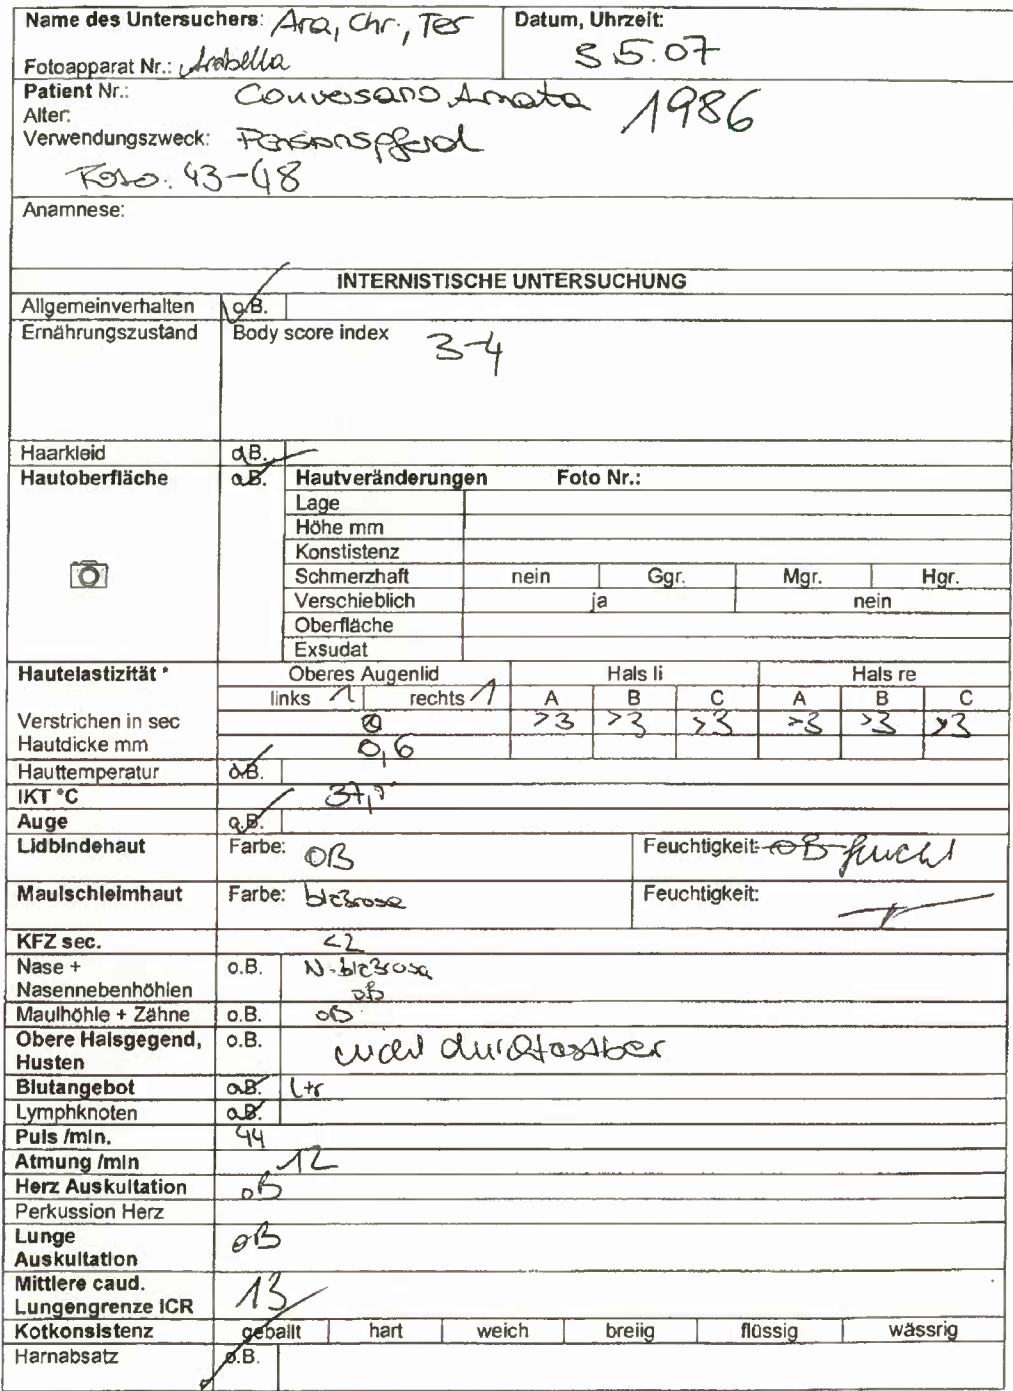 Name des Untersuchers: Ara, Chr., Tes Datum, Uhrzeit:
Fotoapparat Nr.: Arabella 5.07
Patient Nr.: Conversano Amata 1986
Alter:
Verwendungszweck: Pensionspferd
Foto: 43-48
Anamnese:
INTERNISTISCHE UNTERSUCHUNG
Allgemeinverhalten o.B.
Ernährungszustand Body score index 3-4
Haarkleid o.B.
Hautoberfläche o.B. Hautveränderungen Foto Nr.:
Lage
Höhe mm
Konstistenz
Schmerzhaft nein Ggr. Mgr. Hgr.
Verschieblich ja nein
Oberfläche
Exsudat
Hautelastizität * Oberes Augenlid Hals li Hals re
links 1 rechts 1 A B C A B C
Verstrichen in sec >3 >3 >3 >3 >3 >3
Hautdicke mm 0,6
Hauttemperatur o.B.
IKT °C 37,
Auge o.B.
Lidbindehaut Farbe: OB Feuchtigkeit: OB feucht
Maulschleimhaut Farbe: blaßrosa Feuchtigkeit:
KFZ sec. <2
Nase + o.B. N. blaßrosa
Nasennebenhöhlen oB
Maulhöhle + Zähne o.B. oB
Obere Halsgegend, o.B. nicht durchtastbar
Husten
Blutangebot o.B. l+r
Lymphknoten o.B.
Puls /min. 44
Atmung /min 12
Herz Auskultation oB
Perkussion Herz
Lunge oB
Auskultation
Mittlere caud.
Lungengrenze ICR 13
Kotkonsistenz geballt hart weich breiig flüssig wässrig
Harnabsatz o.B.